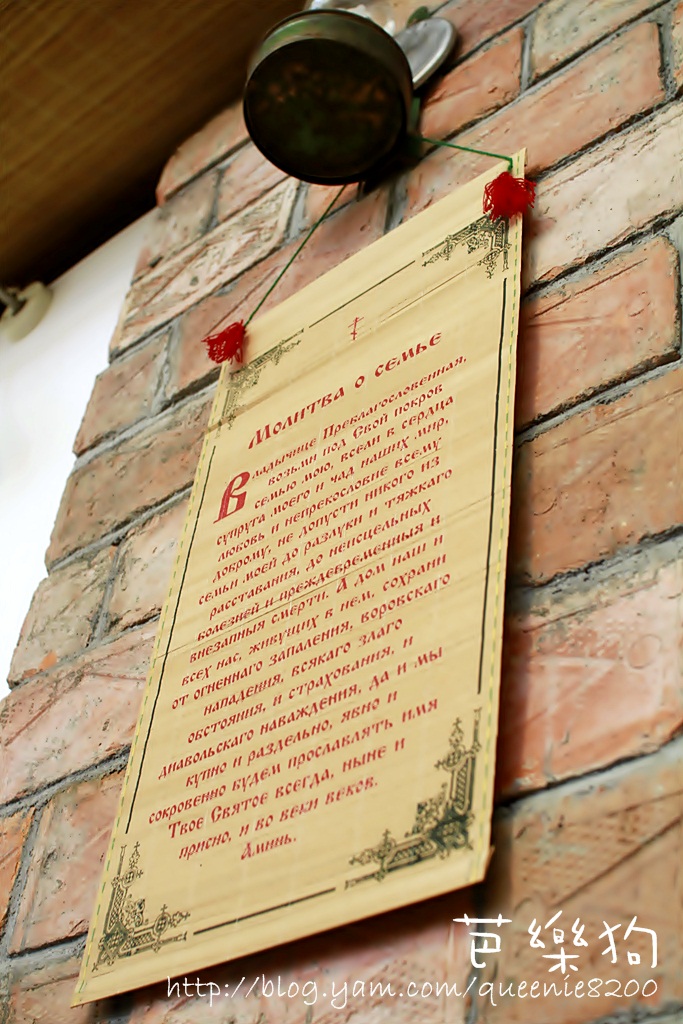 Молитва о семье
Владычице Преблагословенная,
возьми под Свой покров
семью мою, всели в сердца
супруга моего и чад наших мир,
любовь и непрекословие всему
доброму, не допусти никого из
семьи моей до разлуки и тяжкаго
расставания, до неисцельных
болезней и преждевременныя и
внезапныя смерти. А дом наш и
всех нас, живущих в нем, сохрани
от огненнаго запаления, воровскаго
нападения, всякаго злаго
обстояния, и страхования, и
диавольскаго наваждения, да и мы
купно и раздельно, явно и
сокровенно будем прославлять имя
Твое Святое всегда, ныне и
присно, и во веки веков.
Аминь.
芭樂狗
http://blog.yam.com/queenie8200